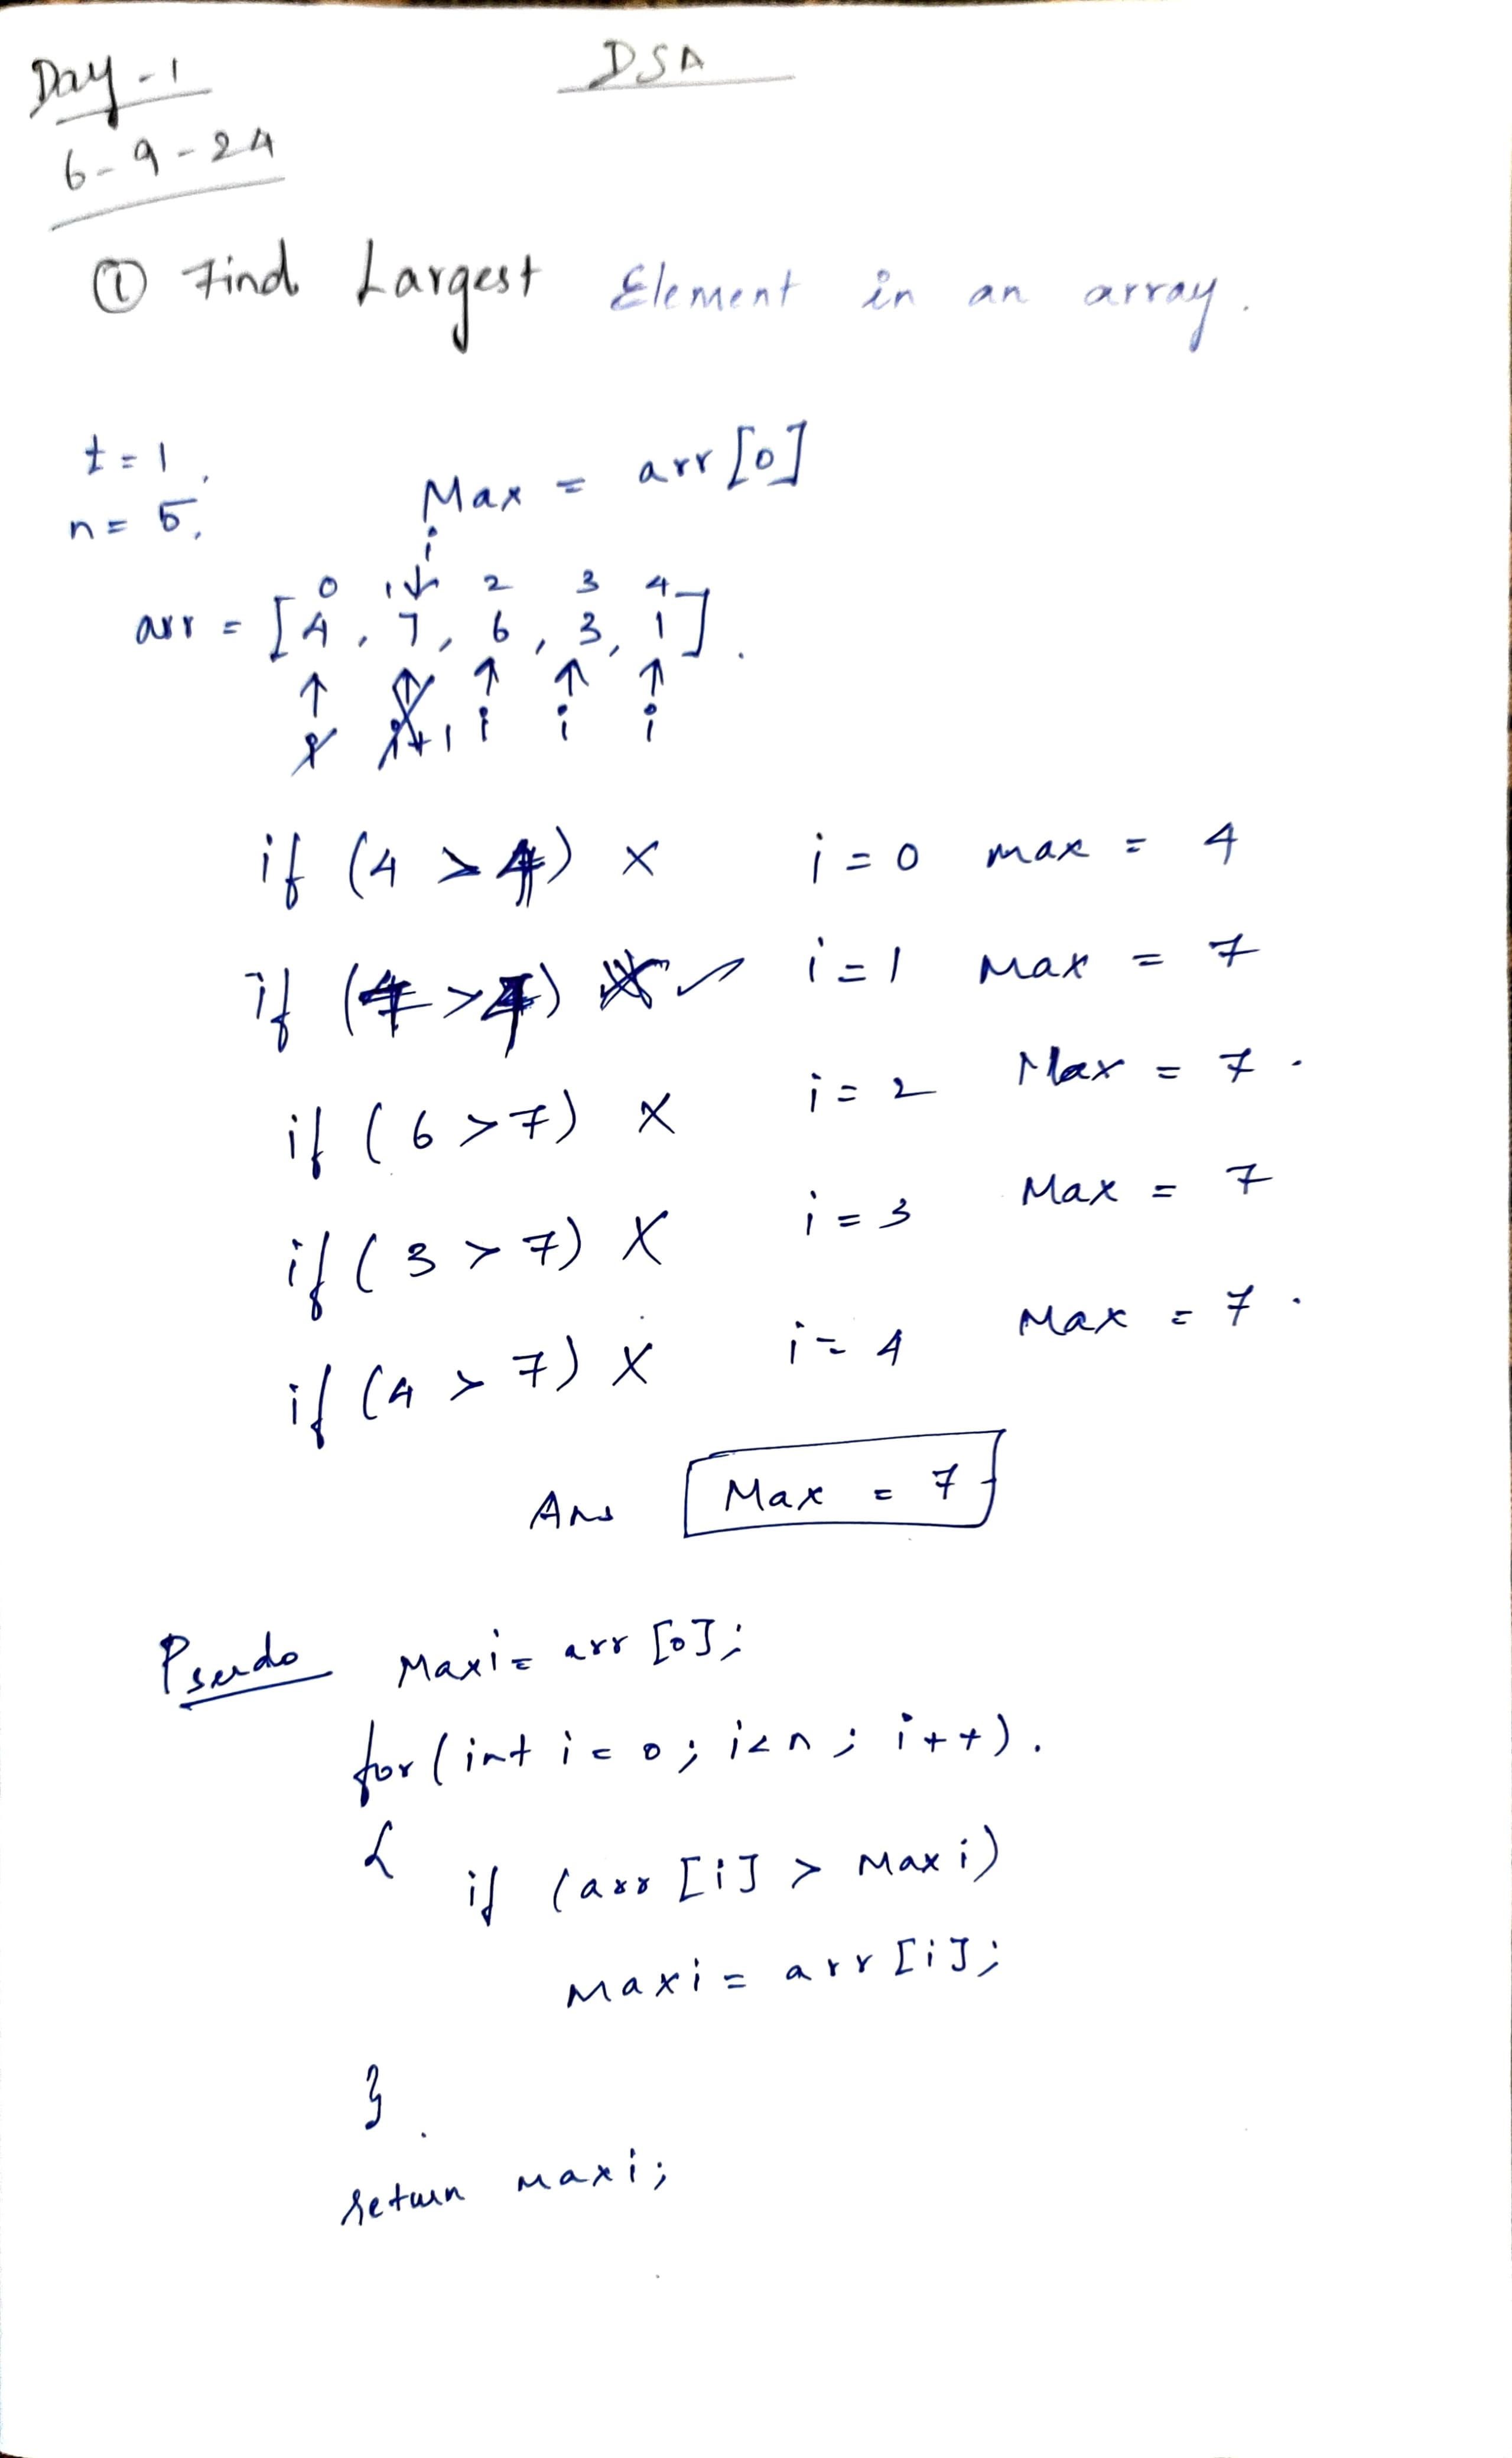 Day-1
DSA
6-9-24
① Find Largest Element in an array.
t=1,
n=5,
Max = arr[0]
i
0 1 2 3 4
arr = [4, 7, 6, 3, 1].
i i+1 i i i
if (4 > 4) x i=0 max = 4
if (7 > 4) ✓ i=1 Max = 7
if (6 > 7) x i=2 Max = 7.
if (3 > 7) x i=3 Max = 7
if (4 > 7) x i=4 Max = 7.
Ans Max = 7
Pseudo Maxi= arr[0];
for(int i=0; i<n; i++).
{
if (arr[i] > Maxi)
Maxi= arr[i];
}.
return maxi;